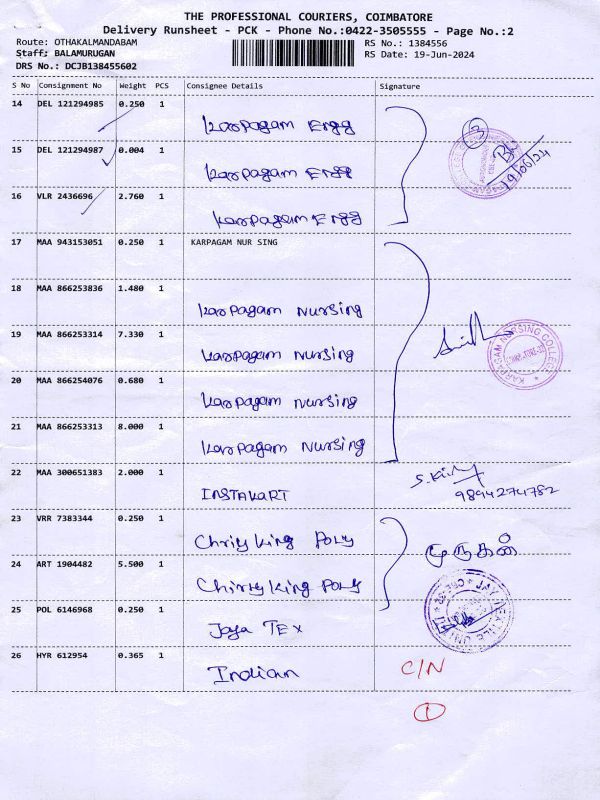 THE PROFESSIONAL COURIERS, COIMBATORE
Delivery Runsheet - PCK - Phone No.:0422-3505555 - Page No.:2
Route: OTHAKALMANDABAM RS No.: 1384556
Staff: BALAMURUGAN RS Date: 19-Jun-2024
DRS No.: DCJB138455602
S No Consignment No Weight PCS Consignee Details Signature
14 DEL 121294985 0.250 1 Karpagam Engg
3
15 DEL 121294987 0.004 1 Karpagam Engg
19/06/24
16 VLR 2436696 2.760 1 Karpagam Engg
17 MAA 943153051 0.250 1 KARPAGAM NUR SING
18 MAA 866253836 1.480 1 Karpagam Nursing
19 MAA 866253314 7.330 1 Karpagam Nursing
KARPAGAM NURSING COLLEGE
20 MAA 866254076 0.680 1 Karpagam Nursing
21 MAA 866253313 8.000 1 Karpagam Nursing
22 MAA 300651383 2.000 1 INSTAKART
9894274782
23 VRR 7383344 0.250 1 Chrity King Poly முருகன்
24 ART 1904482 5.500 1 Chirty King Poly
25 POL 6146968 0.250 1 Jaya TEX
26 HYR 612954 0.365 1 Indian C/N
1